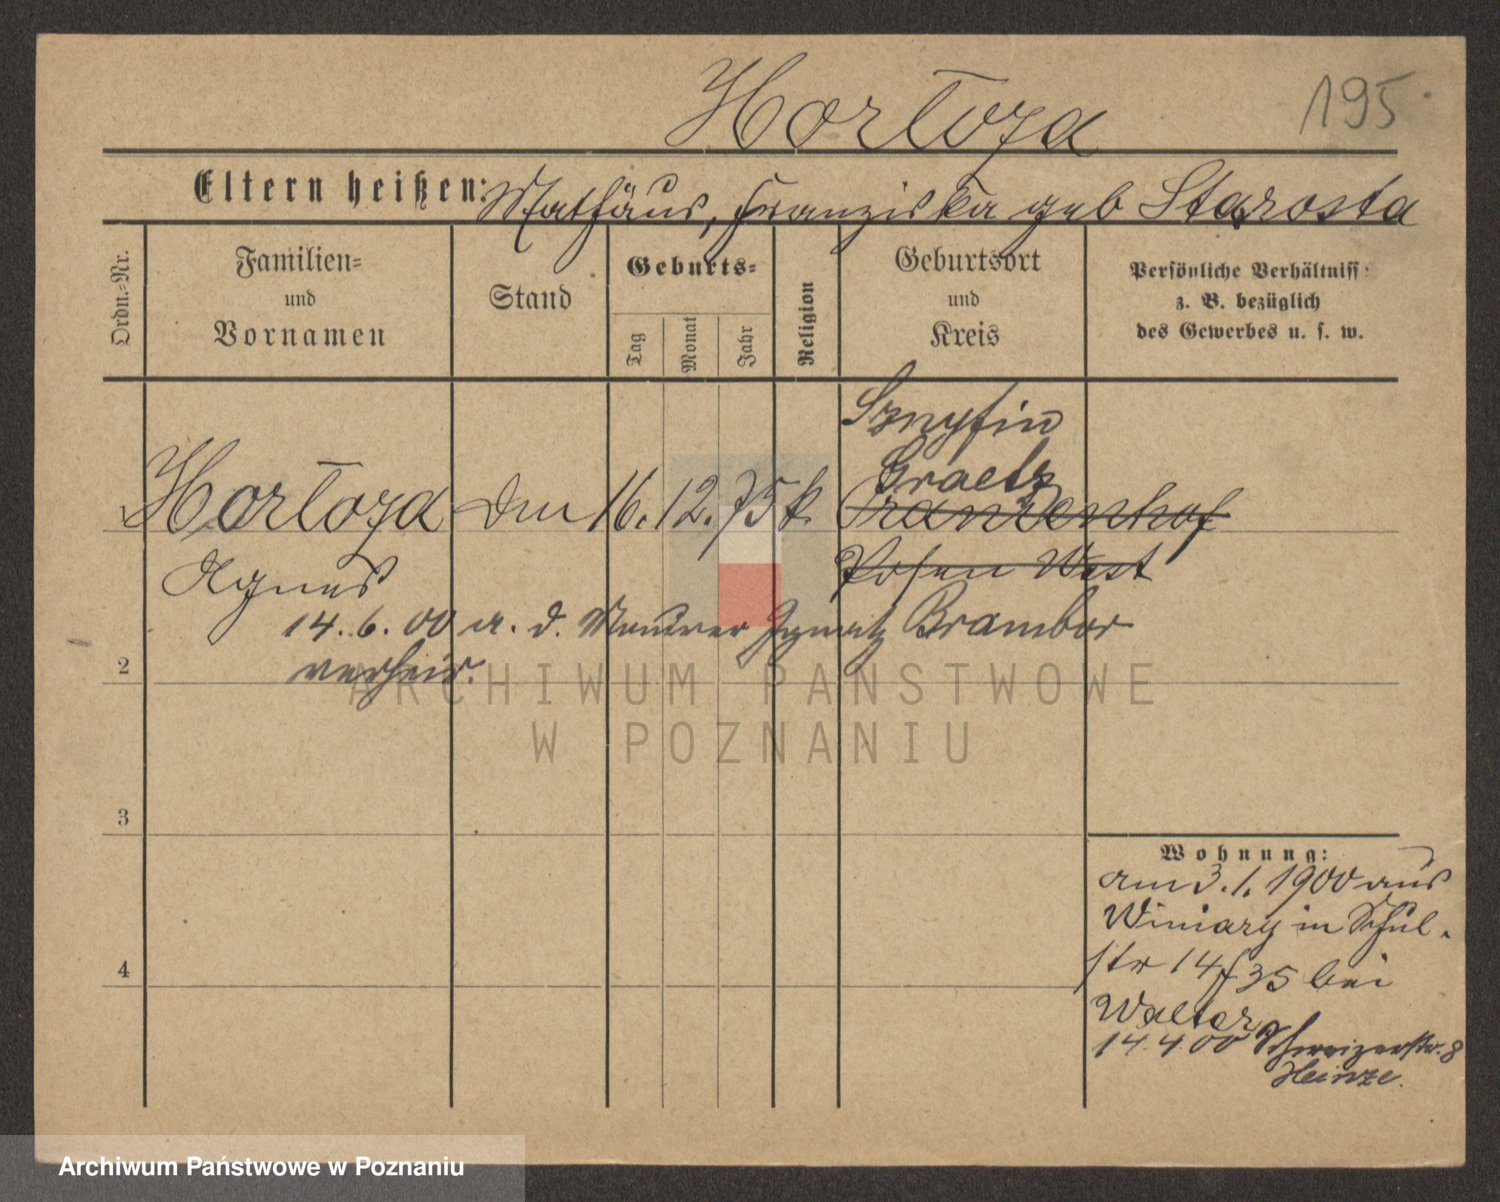 Hortoza
195
Eltern heißen: Mathäus, Franziska geb Starosta
Ordn.=Nr.
Familien=
und
Vornamen
Stand
Geburts=
Tag
Monat
Jahr
Religion
Geburtsort
und
Kreis
Persönliche Verhältniss
z. B. bezüglich
des Gewerbes u. s. w.
Graetz
Hortoza 16. 12. 75 k. Frankenhof
Agnes
Posen West
14. 6. 00 m. d. Maurer Ignatz Brambor
verheir.
2
3
4
Wohnung:
am 3. 1. 1900 aus
Winiary in Schul-
str 14 f 35 bei
Walter
14. 4. 00 Schweizerstr. 8
Heinze.
ARCHIWUM PAŃSTWOWE
W POZNANIU
Archiwum Państwowe w Poznaniu